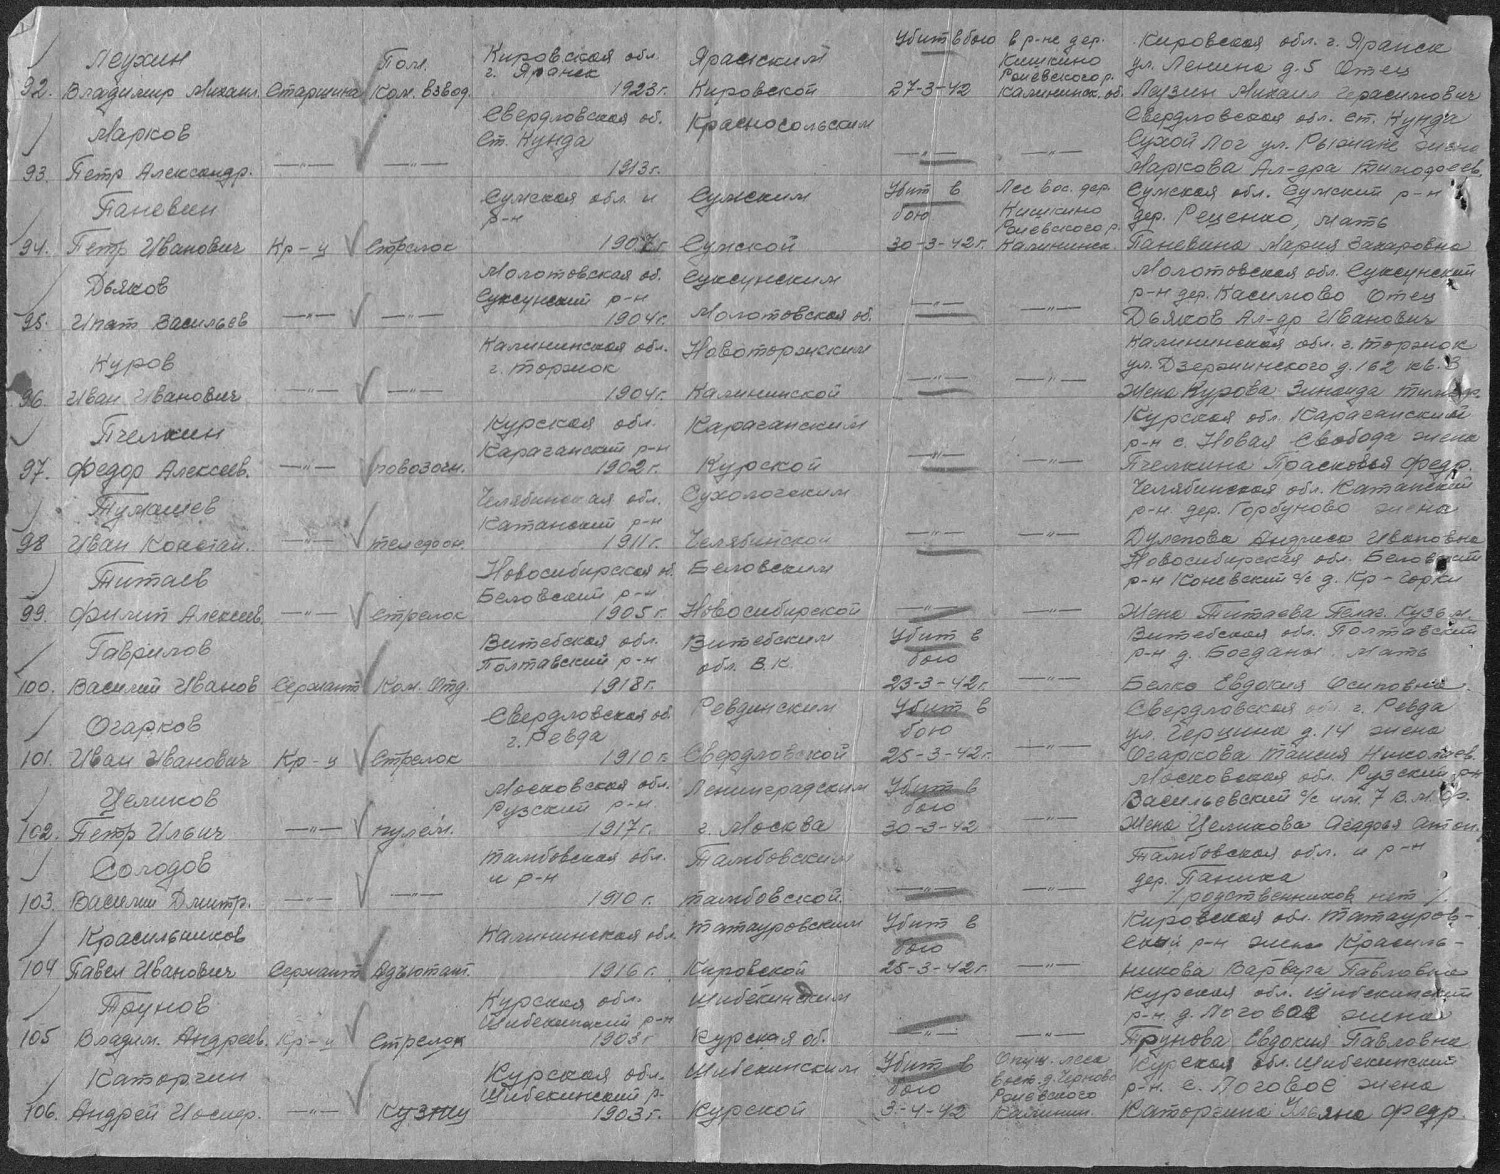 Леухин Пом. Кировская обл. Яранским Убит в бою в р-не дер. Кировская обл. г. Яранск
г. Яранск Кишкино ул. Ленина д. 5 Отец
Ржевского р.
92. Владимир Михаил. Старшина Ком. взвод. 1923 г. Кировской 27-3-42 Калининск. об. Леухин Михаил Герасимович
Марков Свердловская об. Красносольским Свердловская обл. ст. Кунда
ст. Кунда Сухой Лог ул. жена
93. Петр Александр. —"— —"— 1913 г. —"— —"— Маркова Ал-дра Тимофеев.
Паневин Сумская обл. и Сумским Убит в Лес вос. дер. Сумская обл. Сумский р-н
р-н бою Кишкино дер. Реценко, мать
Ржевского р.
94. Петр Иванович Кр-ц Стрелок 1907 г. Сумской 30-3-42 г. Калининск. Паневина Мария Захаровна
Дьяков Молотовская об. Суксунским Молотовская обл. Суксунский
Суксунский р-н р-н дер. Касимово Отец
95. Ипат Васильев —"— —"— 1904 г. Молотовская об. —"— —"— Дьяков Ал-др Иванович
Куров Калининская обл. Новоторжским Калининская обл. г. Торжок
г. Торжок ул. Дзержинского д. 162 кв. 3
96. Иван Иванович —"— —"— 1904 г. Калининской —"— —"— Жена Курова Зинаида
Пчелкин Курская обл. Карачанским Курская обл. Карачанский
Карачанский р-н р-н с. Новая Свобода жена
97. Федор Алексеев. —"— повозочн. 1902 г. Курской —"— —"— Пчелкина Прасковья Федр.
Тумашев Челябинская обл. Сухологским Челябинская обл. Катайский
Катайский р-н р-н дер. Горбуново жена
98 Иван Констан. —"— телефон. 1911 г. Челябинской —"— —"— Ивановна
Титаев Новосибирская об. Беловским Новосибирская обл. Беловский
Беловский р-н р-н Коневский с/с д. Кр-Горки
99. Филип Алексеев. —"— стрелок 1905 г. Новосибирской —"— —"— Жена Титаева Пелаг. Кузьм.
Гаврилов Витебская обл. Витебским Убит в Витебская обл. Полтавский
Полтавский р-н обл. В.К. бою р-н д. Богданы мать
100. Василий Иванов Сержант Ком. Отд. 1918 г. 23-3-42 г. —"— Белко Евдокия Осиповна
Огарков Свердловская об. Ревдинским Убит в Свердловская обл г. Ревда
г. Ревда бою ул. Герцина д. 14 жена
101. Иван Иванович Кр-ц Стрелок 1910 г. Свердловской 25-3-42 г. —"— Огаркова Таисия Николаев.
Целиков Московская обл. Ленинградским Убит в Московская обл. Рузский р-н
Рузский р-н бою Васильевский с/с
102. Петр Ильич —"— пулем. 1917 г. г. Москва 30-3-42 —"— Жена Целикова Агафья Антон.
Солодов Тамбовская обл. Тамбовским Тамбовская обл. и р-н
и р-н дер. Паника
103. Василий Дмитр. —"— —"— 1910 г. Тамбовской —"— —"— /родственников нет/.
Красильников Калининская обл. Татауровским Убит в Кировская обл. Татауров-
бою ский р-н жена Красиль-
104 Павел Иванович Сержант Адъютант. 1916 г. Кировской 25-3-42 г. —"— никова Варвара Павловна
Трунов Курская обл. Шибекинским Курская обл. Шибекинский
Шибекинский р-н р-н д. Логовое жена
105 Владим. Андреев. Кр-ц Стрелок 1903 г. Курская об. —"— —"— Трунова Евдокия Павловна
Каторгин Курская обл. Шибекинским Убит в Опуш. леса Курская обл. Шибекинский
Шибекинский р. бою вост. д. Черново р-н. с. Логовое жена
Ржевского
106. Андрей Иосиф. —"— Кузнец 1903 г. Курской 3-4-42 Калинин. Каторгина Ульяна Федр.